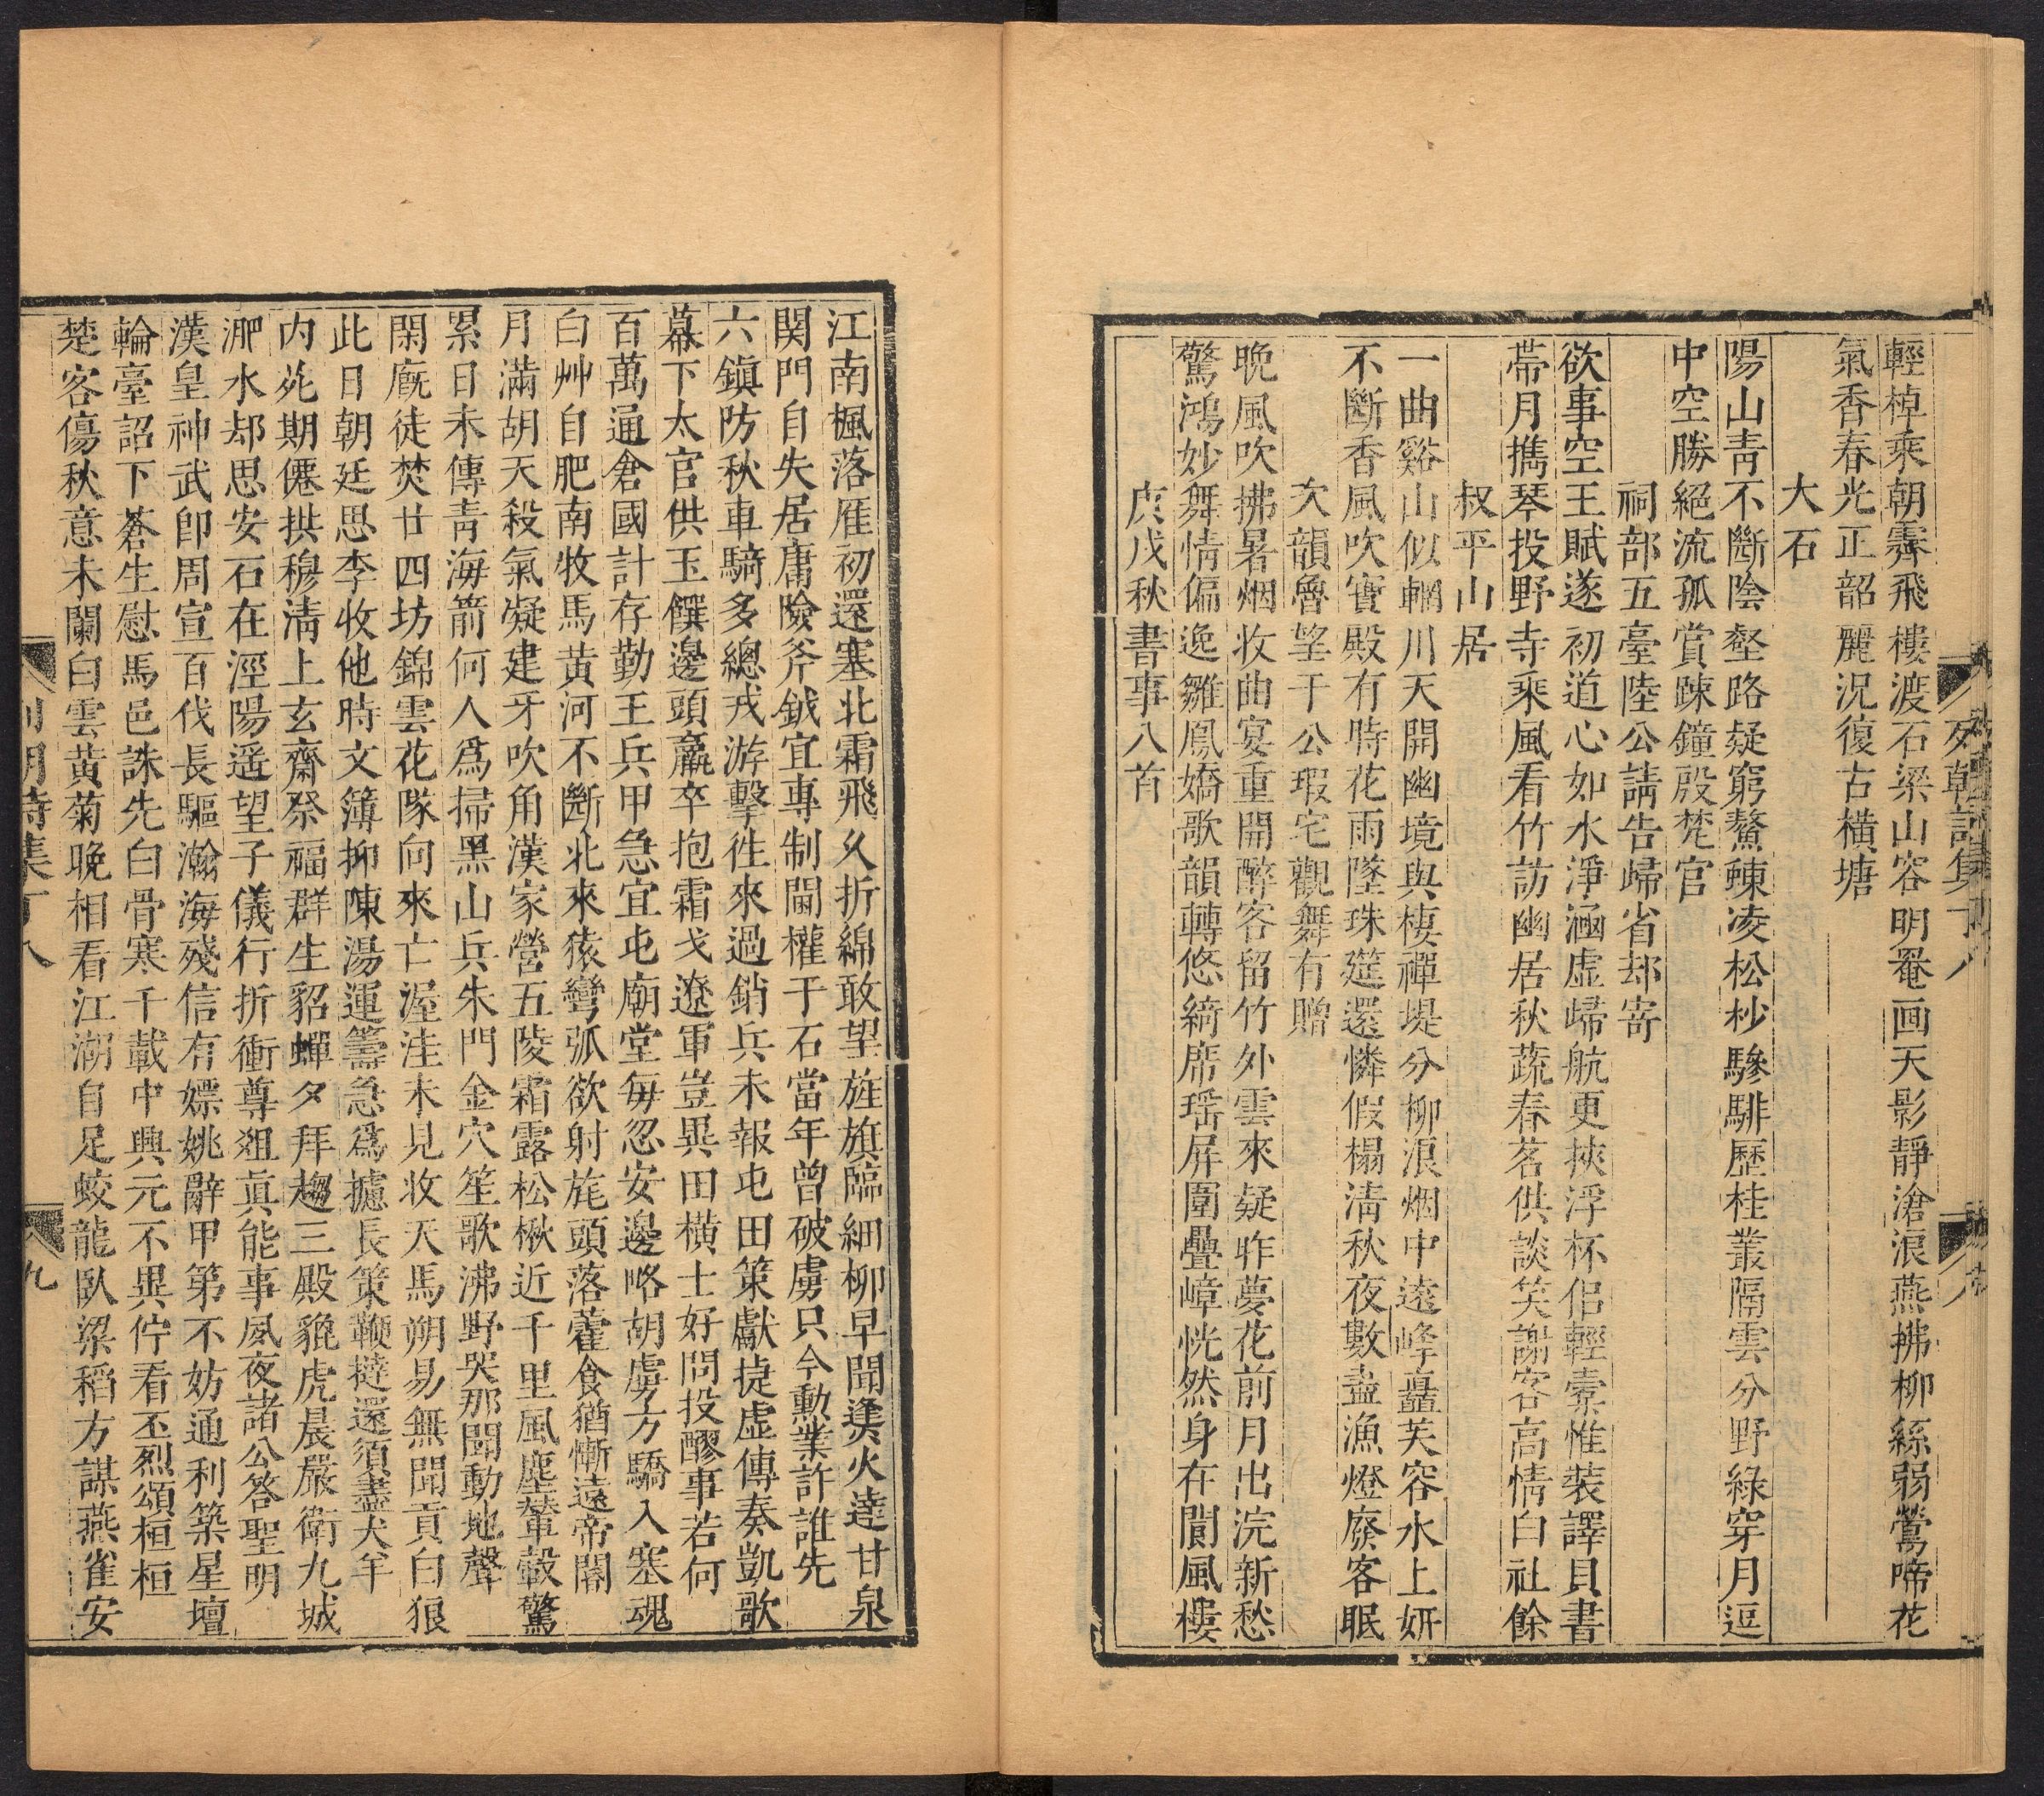 輕棹乘朝霽飛樓渡石梁山容明罨画天影靜滄浪燕拂柳絲弱鶯啼花
氣香春光正韶麗況復古橫塘
大石
陽山靑不斷陰壑路疑窮鰲蝀凌松杪驂騑歷桂叢隔雲分野綠穿月逗
中空勝絕流孤賞踈鐘殷梵宫
祠部五臺陸公請告歸省却寄
欲事空王賦遂初道心如水淨涵虛歸航更挾浮杯侶輕橐惟裝譯貝書
帶月擕琴投野寺乘風看竹訪幽居秋蔬春茗供談笑謝客高情白社餘
叔平山居
一曲谿山似輞川天開幽境與棲禪堤分柳浪烟中遠峰矗芙容水上姸
不斷香風吹寶殿有時花雨墜珠筵還憐假榻淸秋夜數盡漁燈廢客眠
次韻魯望于公瑕宅觀舞有贈
晚風吹拂暑烟收曲宴重開醉客留竹外雲來疑昨夢花前月出浣新愁
驚鴻妙舞情偏逸雛鳳嬌歌韻轉悠綺席瑶屏圍疊嶂恍然身在閬風樓
庚戌秋書事八首
江南楓落雁初還塞北霜飛久折綿敢望旌旗臨細柳早聞㷭火達甘泉
関門自失居庸險斧鉞宜專制閫權于石當年曾破虜只今勳業許誰先
六鎮防秋車騎多總戎游擊徃來過銷兵未報屯田策獻㨗虛傳奏凱歌
幕下太官供玉饌邊頭羸卒抱霜戈遼軍豈異田橫士好問投醪事若何
百萬通倉國計存勤王兵甲急宜屯廟堂每忽安邊略胡虜方驕入塞魂
白艸自肥南牧馬黃河不斷北來猿彎弧欲射旄頭落藿食猶慚遠帝閽
月滿胡天殺氣凝建牙吹角漢家營五陵霜露松楸近千里風塵輦轂驚
累日未傳靑海箭何人爲掃黑山兵朱門金穴笙歌沸野哭那聞動地聲
閑廐徒焚廿四坊錦雲花隊向來亡渥洼未見收天馬朔易無聞貢白狼
此日朝廷思李收他時文簿抑陳湯運籌急爲攄長策鞭撻還須盡犬羊
内苑期僊拱穆淸上玄齋祭福群生貂蟬夕拜趨三殿貔虎晨嚴衛九城
淝水却思安石在涇陽遥望子儀行折衝尊爼眞能事夙夜諸公答聖明
漢皇神武卽周宣百伐長驅瀚海殘信有嫖姚辭甲第不妨通利築星壇
輪臺詔下蒼生慰馬邑誅先白骨寒千載中興元不異佇看丕烈頌桓桓
楚客傷秋意未闌白雲黃菊晚相看江湖自足蛟龍臥粱稻方謀燕雀安
列朝詩集丁八
九